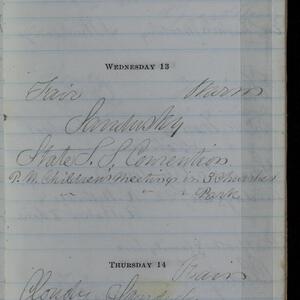 WEDNESDAY 13
Fair Warm
Sandusky
State S. S. Convention
P.M. Children's Meetings in 3 Churches
" " " Park
THURSDAY 14
Rain
Cloudy Sandusky